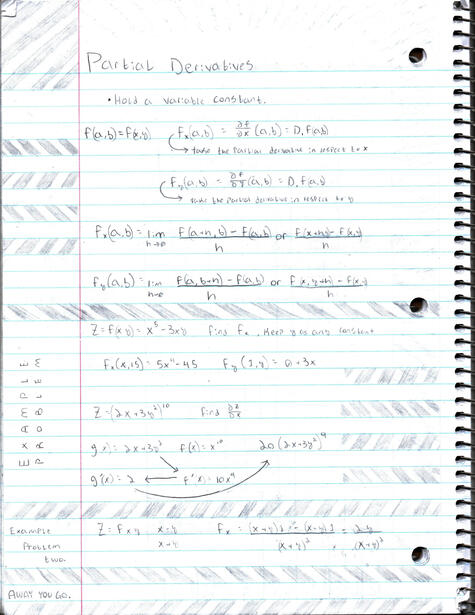 Partial Derivatives
• Hold a variable constant.
f(a,b) = f(x,y) Fx(a,b) = ∂f/∂x (a,b) = D, f(a,b)
take the partial derivative in respect to x
Fy(a,b) = ∂f/∂y (a,b) = D, f(a,b)
take the partial derivative in respect to y
Fx(a,b) = lim h→0 F(a+h,b) - F(a,b) / h or F(x+h) - F(x,y) / h
Fy(a,b) = lim h→0 F(a,b+h) - F(a,b) / h or F(x,y+h) - F(x,y) / h
Z = f(x,y) = x⁵ - 3xy find Fx, Keep y as any constant
Fx(x,15) = 5x⁴ - 45 Fy(1,y) = 0 + 3x
Z = (2x + 3y²)¹⁰ find ∂z/∂x
g(x) = 2x + 3y² f(x) = x¹⁰ 20(2x + 3y²)⁹
g'(x) = 2 f'(x) = 10x⁹
Example
Problem
two.
Z = Fxy x-y / x+y Fx = (x+y)1 - (x-y)1 / (x+y)² = 2y / (x+y)²
AWAY YOU GO.